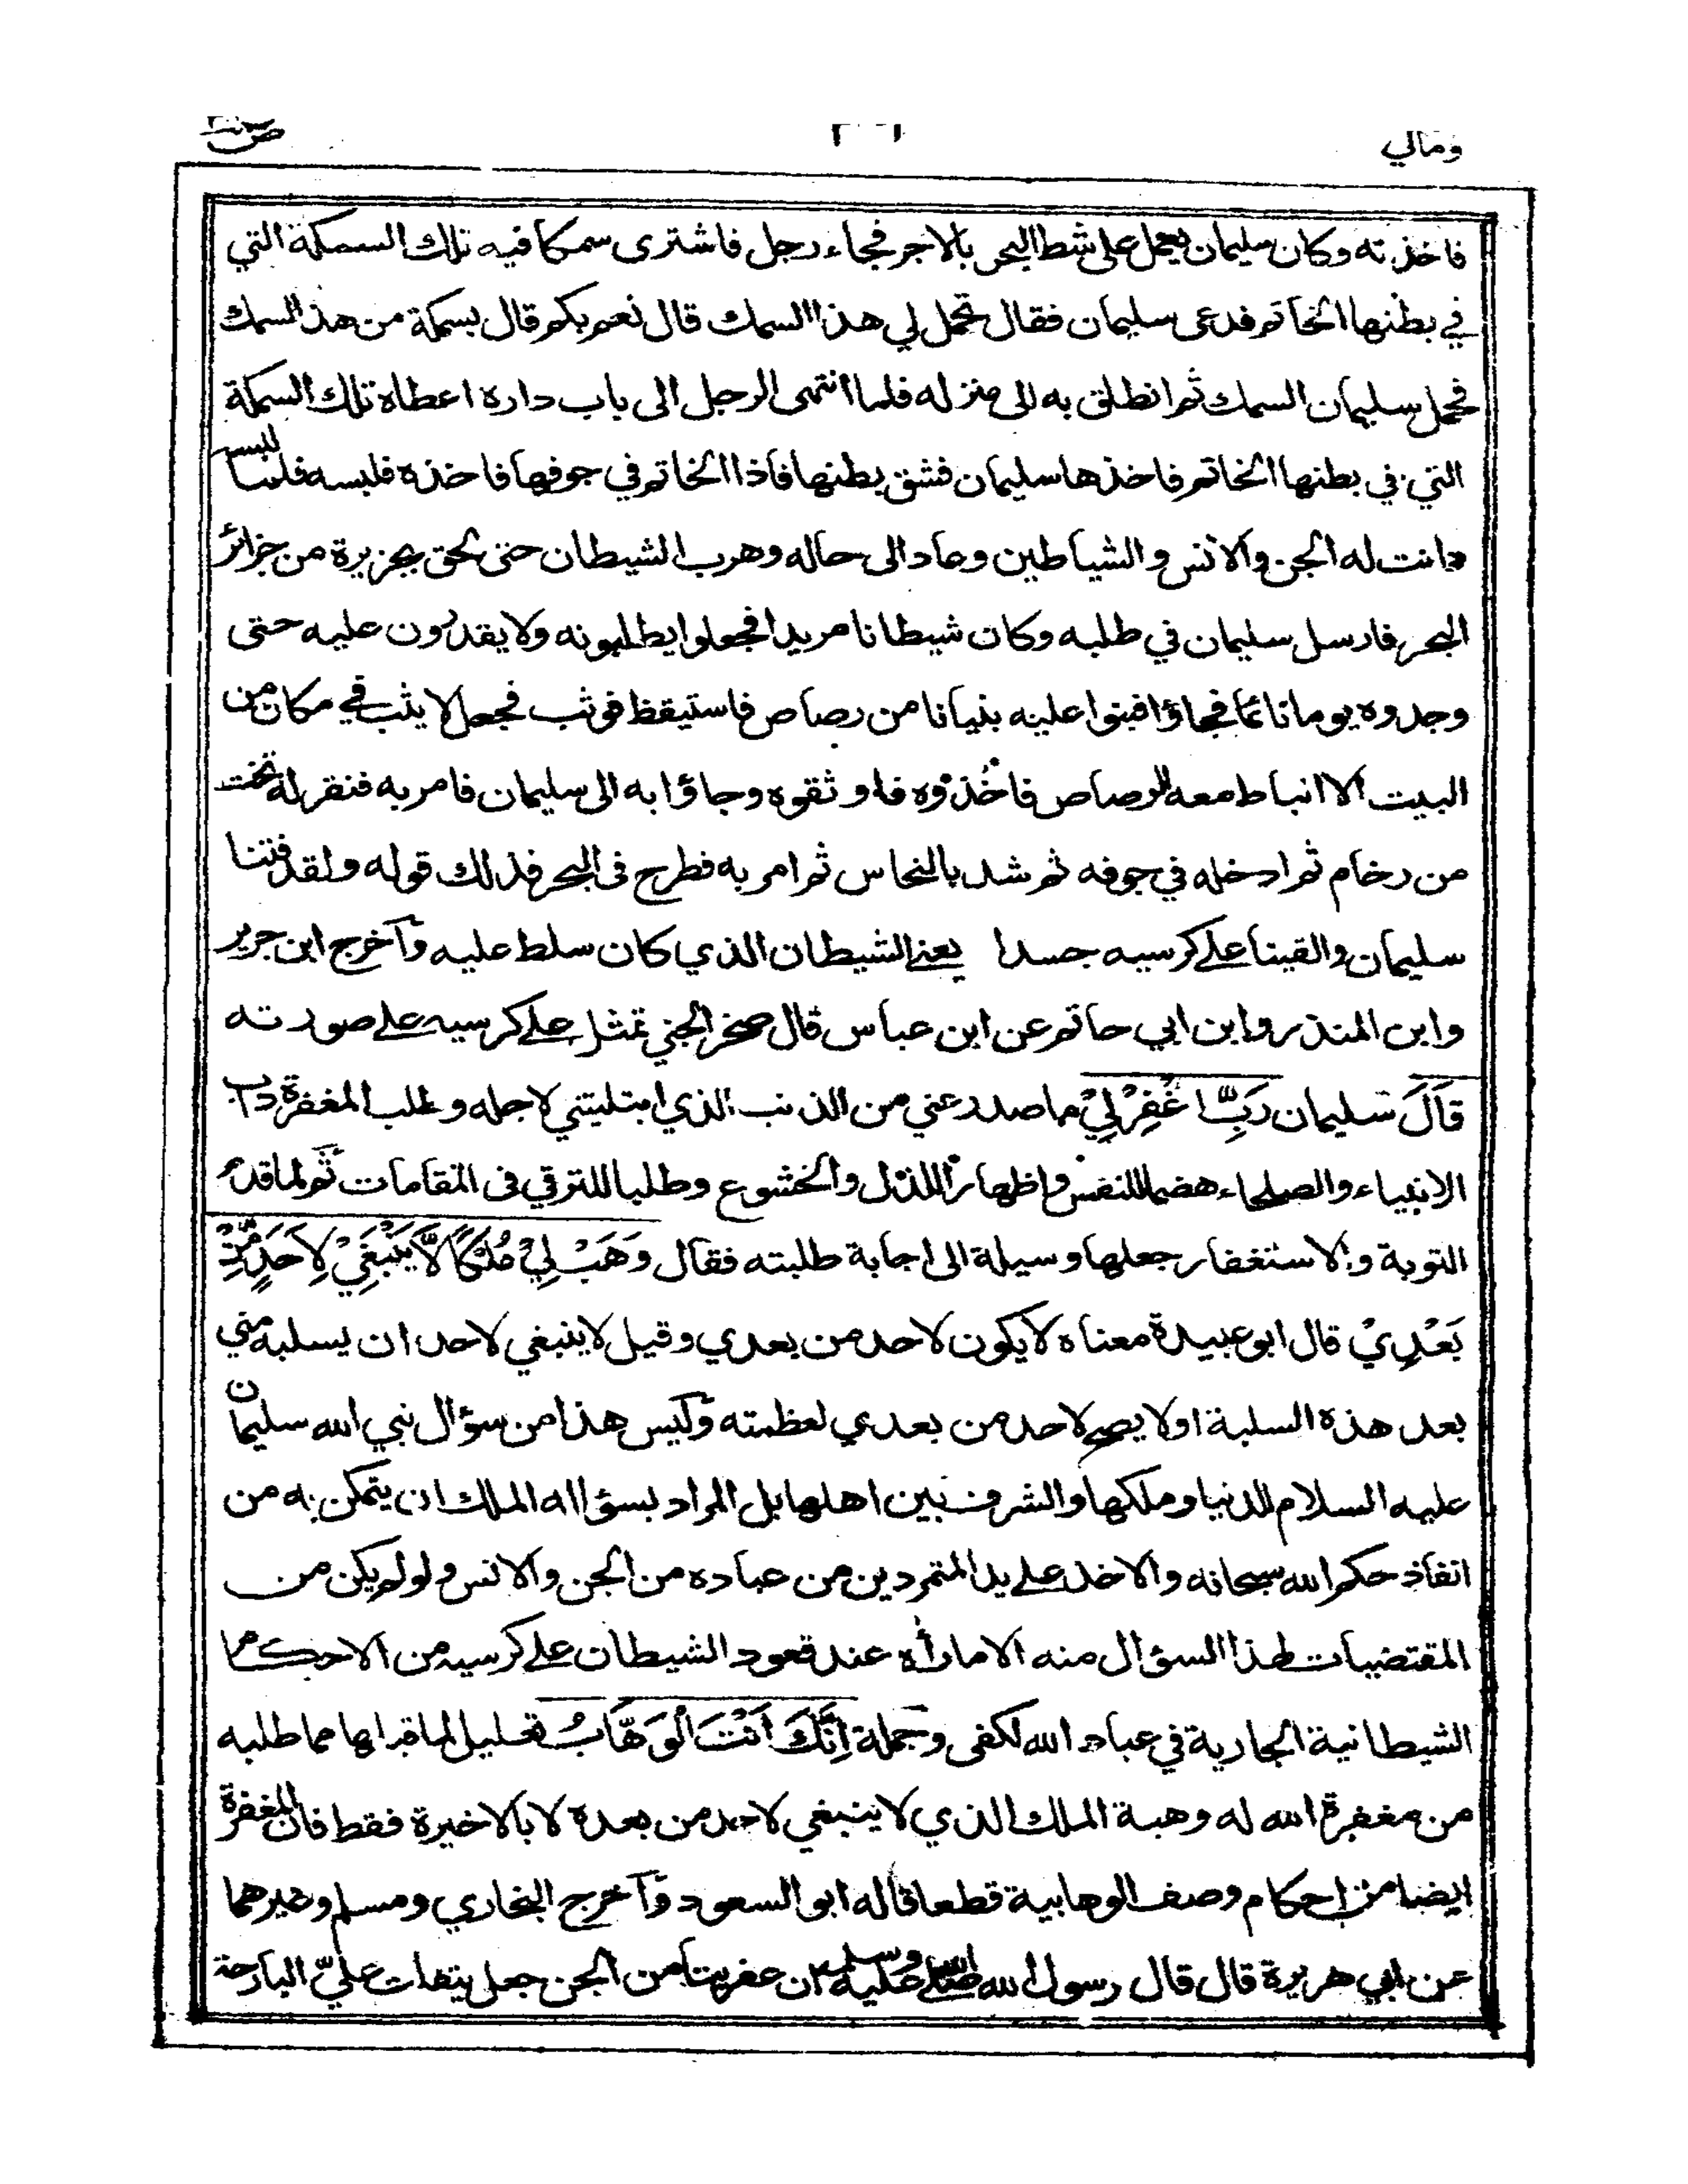 ومالي ص
فاخذته وكان سليمان يعمل على شط البحر بالاجر فجاء رجل فاشترى سمكا فيه تلك السمكة التي
في بطنها الخاتم فدعى سليمان فقال تحمل لي هذا السمك قال نعم بكم قال بسمكة من هذا السمك
فحمل سليمان السمك ثم انطلق به الى منزله فلما انتهى الرجل الى باب داره اعطاه تلك السمكة
التي في بطنها الخاتم فاخذها سليمان فشق بطنها فاذا الخاتم في جوفها فاخذه فلبسه فلما لبسه
دانت له الجن والانس والشياطين وعاد الى حاله وهرب الشيطان حتى لحق بجزيرة من جزائر
البحر فارسل سليمان في طلبه وكان شيطانا مريدا فجعلوا يطلبونه ولا يقدرون عليه حتى
وجدوه يوما نائما فجاؤا فبنوا عليه بنيانا من رصاص فاستيقظ فوثب فجعل لا يثب في مكان من
البيت الا انباط معه الرصاص فاخذوه فاوثقوه وجاؤا به الى سليمان فامر به فنقر له تخت
من رخام ثم ادخله في جوفه ثم شد بالنحاس ثم امر به فطرح فى البحر فذلك قوله ولقد فتنا
سليمان والقينا على كرسيه جسدا يعنے الشيطان الذي كان سلط عليه وآخرج ابن جرير
وابن المنذر وابن ابي حاتم عن ابن عباس قال صخر الجني تمثل علے كرسيه علے صورته
قَالَ سليمان رَبِّ اغْفِرْ لِيْ ما صدر عني من الذنب الذي ابتليتني لاجله وطلب المغفرة داب
الانبياء والصلحاء هضما للنفس واظهارا للذل والخشوع وطلبا للترقي فى المقامات ثم لما قدم
التوبة والاستغفار جعلها وسيلة الى اجابة طلبته فقال وَهَبْ لِيْ مُلْكًا لَّا يَنْبَغِيْ لِاَحَدٍ مِّنْۢ
بَعْدِيْ قال ابو عبيدة معناه لا يكون لاحد من بعدي وقيل لا ينبغي لاحد ان يسلبه مني
بعد هذه السلبة اولا يصح لاحد من بعدي لعظمته وليس هذا من سؤال نبي الله سليمان
عليه السلام للدنيا وملكها والشرف بين اهلها بل المراد بسؤاله الملك ان يتمكن به من
انفاذ حكم الله سبحانه والاخذ علے يد المتمردين من عباده من الجن والانس ولو لم يكن من
المقتضيات لهذا السؤال منه الا ما رأه عند قعود الشيطان علے كرسيه من الاحكام
الشيطانية الجارية في عباد الله لكفى وجملة اِنَّكَ اَنْتَ الْوَهَّابُ تعليل لما قبلها مما طلبه
من مغفرة الله له وهبة الملك الذي لا ينبغي لاحد من بعده لا بالاخيرة فقط فان المغفرة
ايضا من احكام وصف الوهابية قطعا قاله ابو السعود وآخرج البخاري ومسلم وغيرهما
عن ابي هريرة قال قال رسول الله صلى الله عليه وسلم ان عفريتا من الجن جعل يتفلت عليّ البارحة